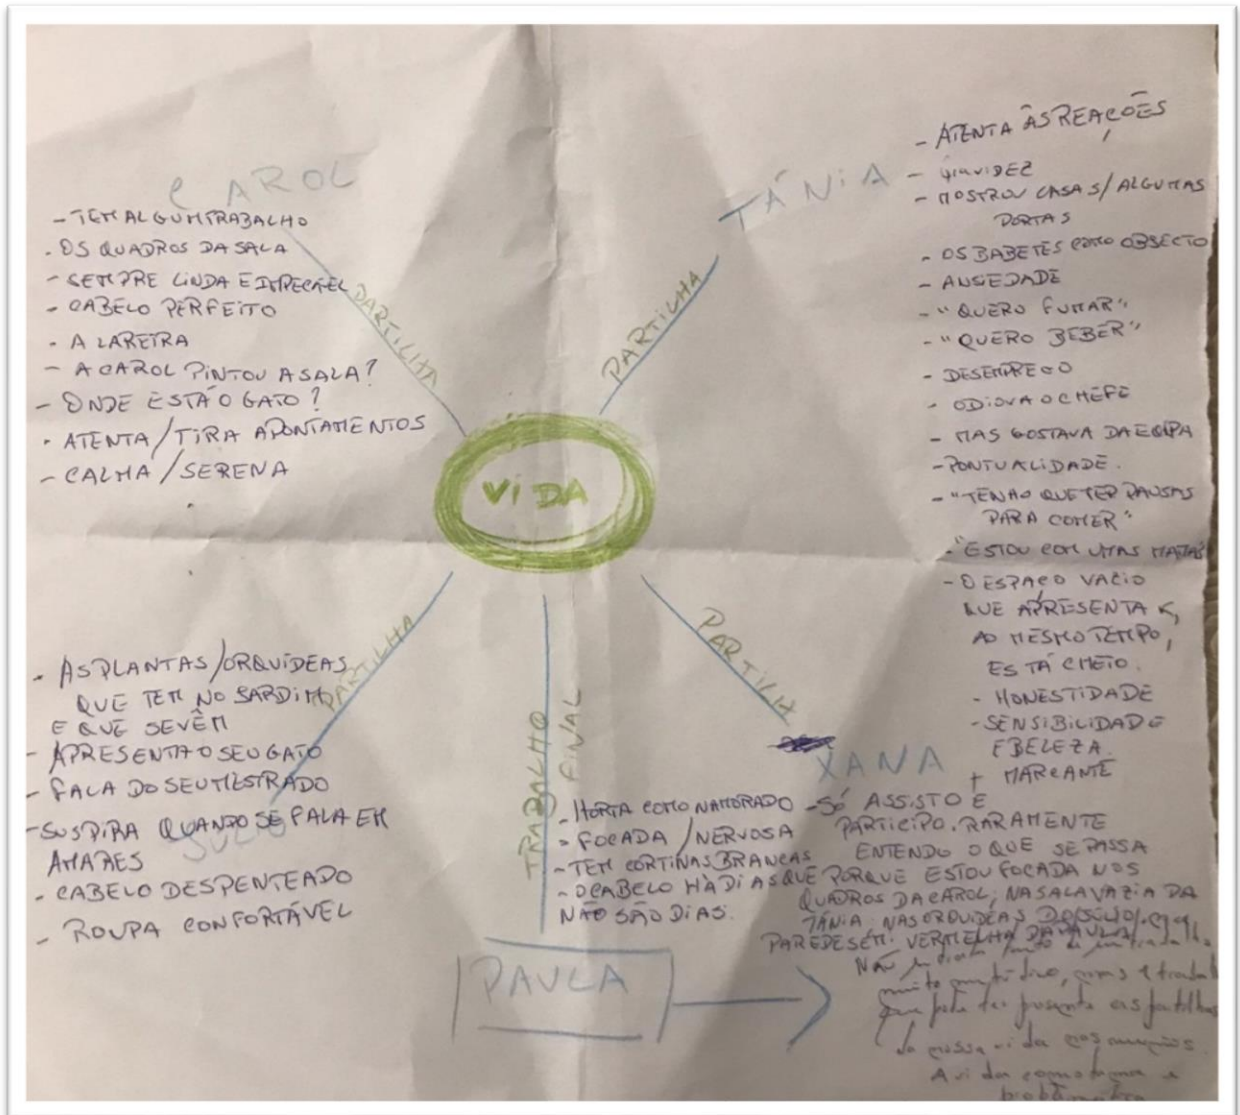 CAROL
- TEM ALGUM TRABALHO
- OS QUADROS DA SALA
- SEMPRE LINDA E IMPECÁVEL
- CABELO PERFEITO
- A LAREIRA
- A CAROL PINTOU A SALA?
- ONDE ESTÁ O GATO?
- ATENTA/TIRA APONTAMENTOS
- CALMA/SERENA
PARTILHA
TÂNIA
- ATENTA ÀS REAÇÕES
- GRAVIDEZ
- MOSTROU CASA S/ALGUMAS
PORTAS
- OS BABETES COMO OBJECTO
- ANSIEDADE
- "QUERO FUMAR"
- "QUERO BEBER"
- DESEMPREGO
- ODIAVA O CHEFE
- MAS GOSTAVA DA EQUIPA
- PONTUALIDADE.
- "TENHO QUE TER PAUSAS
PARA COMER"
- "ESTOU COM UMAS
- O ESPAÇO VAZIO
QUE APRESENTA E,
AO MESMO TEMPO,
ESTÁ CHEIO.
- HONESTIDADE
- SENSIBILIDADE
E BELEZA.
+ MARCANTE
PARTILHA
VIDA
PARTILHA
- AS PLANTAS/ORQUÍDEAS
QUE TEM NO JARDIM
E QUE SE VÊM
- APRESENTA O SEU GATO
- FALA DO SEU MESTRADO
- SUSPIRA QUANDO SE FALA EM
AMARES
- CABELO DESPENTEADO
- ROUPA CONFORTÁVEL
TRABALHO
FINAL
PARTILHA
XANA
- HORTA COM O NAMORADO
- FOCADA/NERVOSA
- TEM CORTINAS BRANCAS
- O CABELO HÁ DIAS QUE
NÃO SÃO DIAS.
- SÓ ASSISTO E
PARTICIPO. RARAMENTE
ENTENDO O QUE SE PASSA
PORQUE ESTOU FOCADA NOS
QUADROS DA CAROL; NA SALA VAZIA DA
TÂNIA; NAS ORQUÍDEAS
PAREDE VERMELHA DA PAULA
PAULA